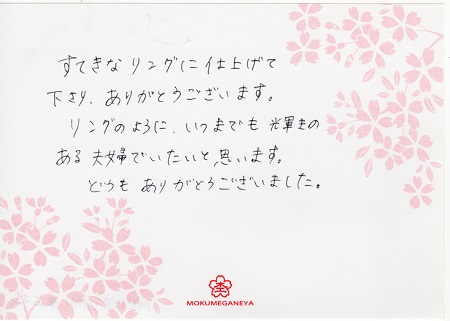 すてきな リングに 仕上げて
下さり、ありがとうございます。
リングのように、いつまでも 光輝きの
ある 夫婦でいたいと、思います。
どうも ありがとうございました。
MOKUMEGANEYA